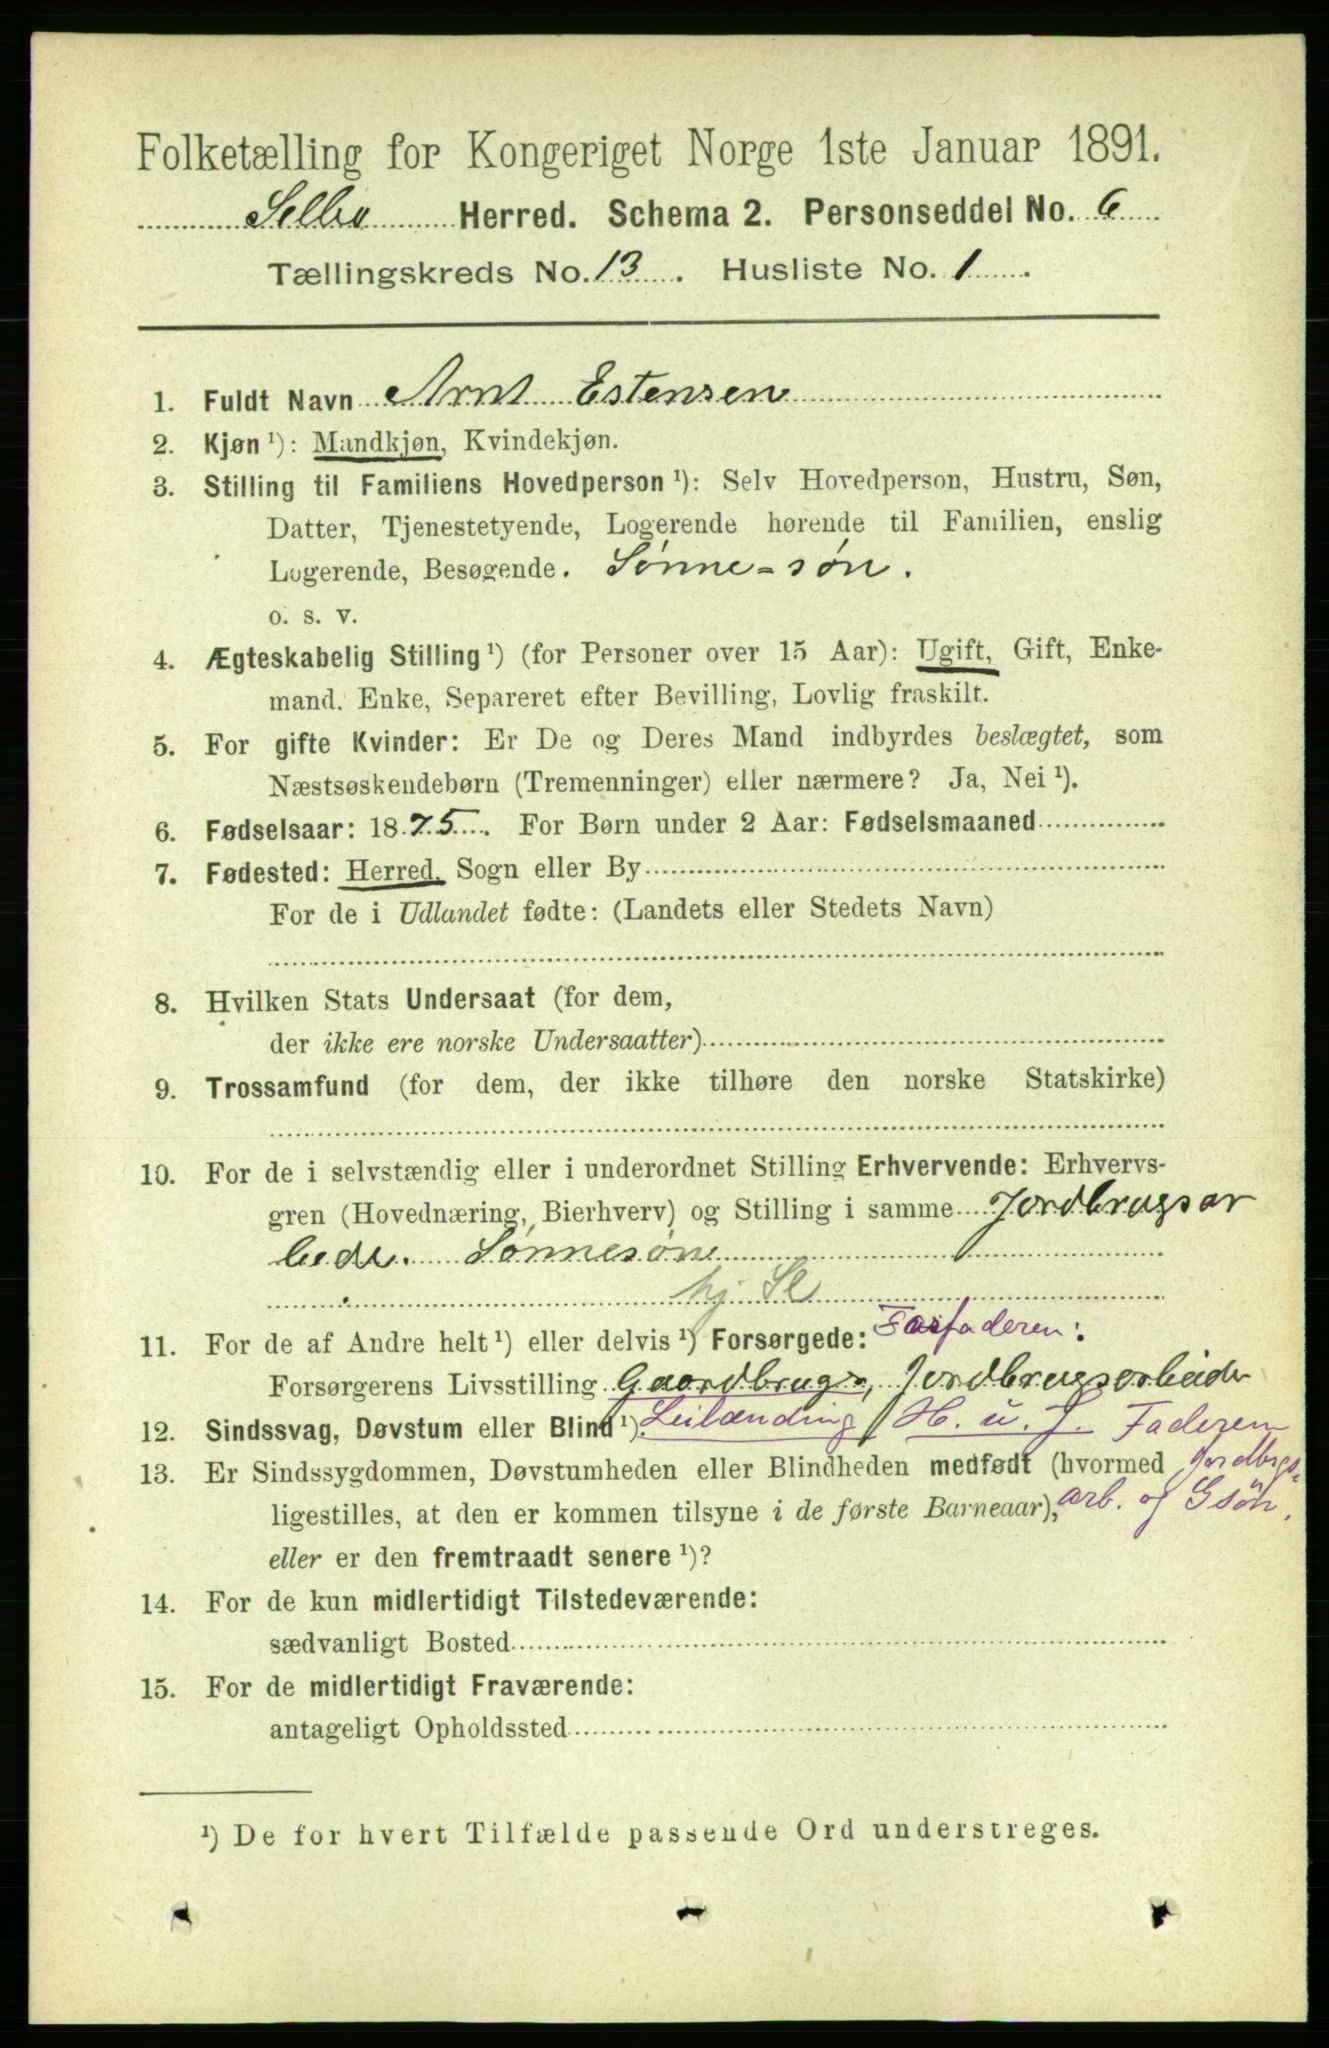 Folketælling for Kongeriget Norge 1ste Januar 1891.
Selbu Herred. Schema 2. Personseddel No. 6
Tællingskreds No. 13. Husliste No. 1.
1. Fuldt Navn Arnt Estensen
2. Kjøn ¹): Mandkjøn, Kvindekjøn.
3. Stilling til Familiens Hovedperson ¹): Selv Hovedperson, Hustru, Søn,
Datter, Tjenestetyende, Logerende hørende til Familien, enslig
Logerende, Besøgende. Sønne-søn.
o. s. v.
4. Ægteskabelig Stilling ¹) (for Personer over 15 Aar): Ugift, Gift, Enke-
mand. Enke, Separeret efter Bevilling, Lovlig fraskilt.
5. For gifte Kvinder: Er De og Deres Mand indbyrdes beslægtet, som
Næstsøskendebørn (Tremenninger) eller nærmere? Ja, Nei ¹).
6. Fødselsaar: 1875. For Børn under 2 Aar: Fødselsmaaned
7. Fødested: Herred, Sogn eller By
For de i Udlandet fødte: (Landets eller Stedets Navn)
8. Hvilken Stats Undersaat (for dem,
der ikke ere norske Undersaatter)
9. Trossamfund (for dem, der ikke tilhøre den norske Statskirke)
10. For de i selvstændig eller i underordnet Stilling Erhvervende: Erhvervs-
gren (Hovednæring, Bierhverv) og Stilling i samme Jordbrugsar
beide. Sønnesøn
hj. Sl
11. For de af Andre helt ¹) eller delvis ¹) Forsørgede: Farfaderen:
Forsørgerens Livsstilling Gaardbruger, Jordbrugsarbeider
12. Sindssvag, Døvstum eller Blind ¹). Leilænding H. u. J. Faderen
13. Er Sindssygdommen, Døvstumheden eller Blindheden medfødt (hvormed Jordbrgs-
ligestilles, at den er kommen tilsyne i de første Barneaar), arb. og Gsön.
eller er den fremtraadt senere ¹)?
14. For de kun midlertidigt Tilstedeværende:
sædvanligt Bosted
15. For de midlertidigt Fraværende:
antageligt Opholdssted
¹) De for hvert Tilfælde passende Ord understreges.